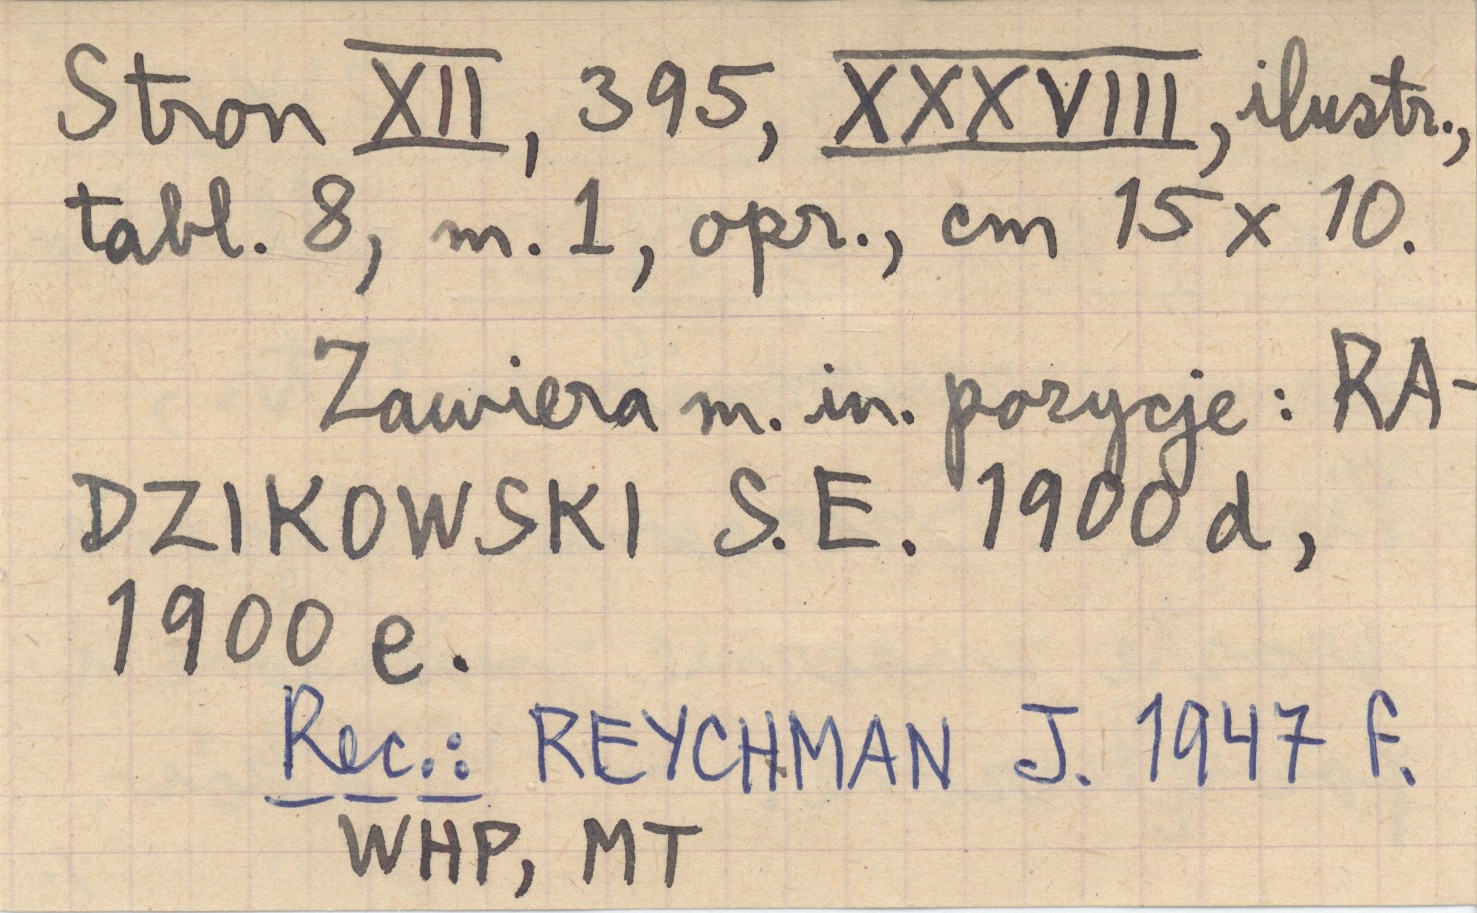 Stron XII, 395, XXXVIII, ilustr.,
tabl. 8, m. 1, opr., cm 15 x 10.
Zawiera m. in. pozycje: RA-
DZIKOWSKI S.E. 1900 d,
1900 e.
Rec.: REYCHMAN J. 1947 f.
WHP, MT